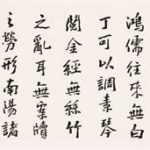 鴻儒往來無白
丁可以調素琴
閱金經無絲竹
之亂耳無案牘
之勞形南陽諸